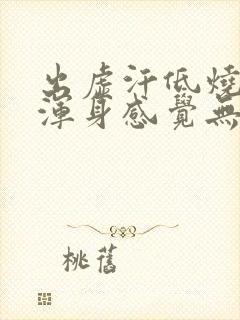 出虛汗低燒
渾身感覺無
桃舊